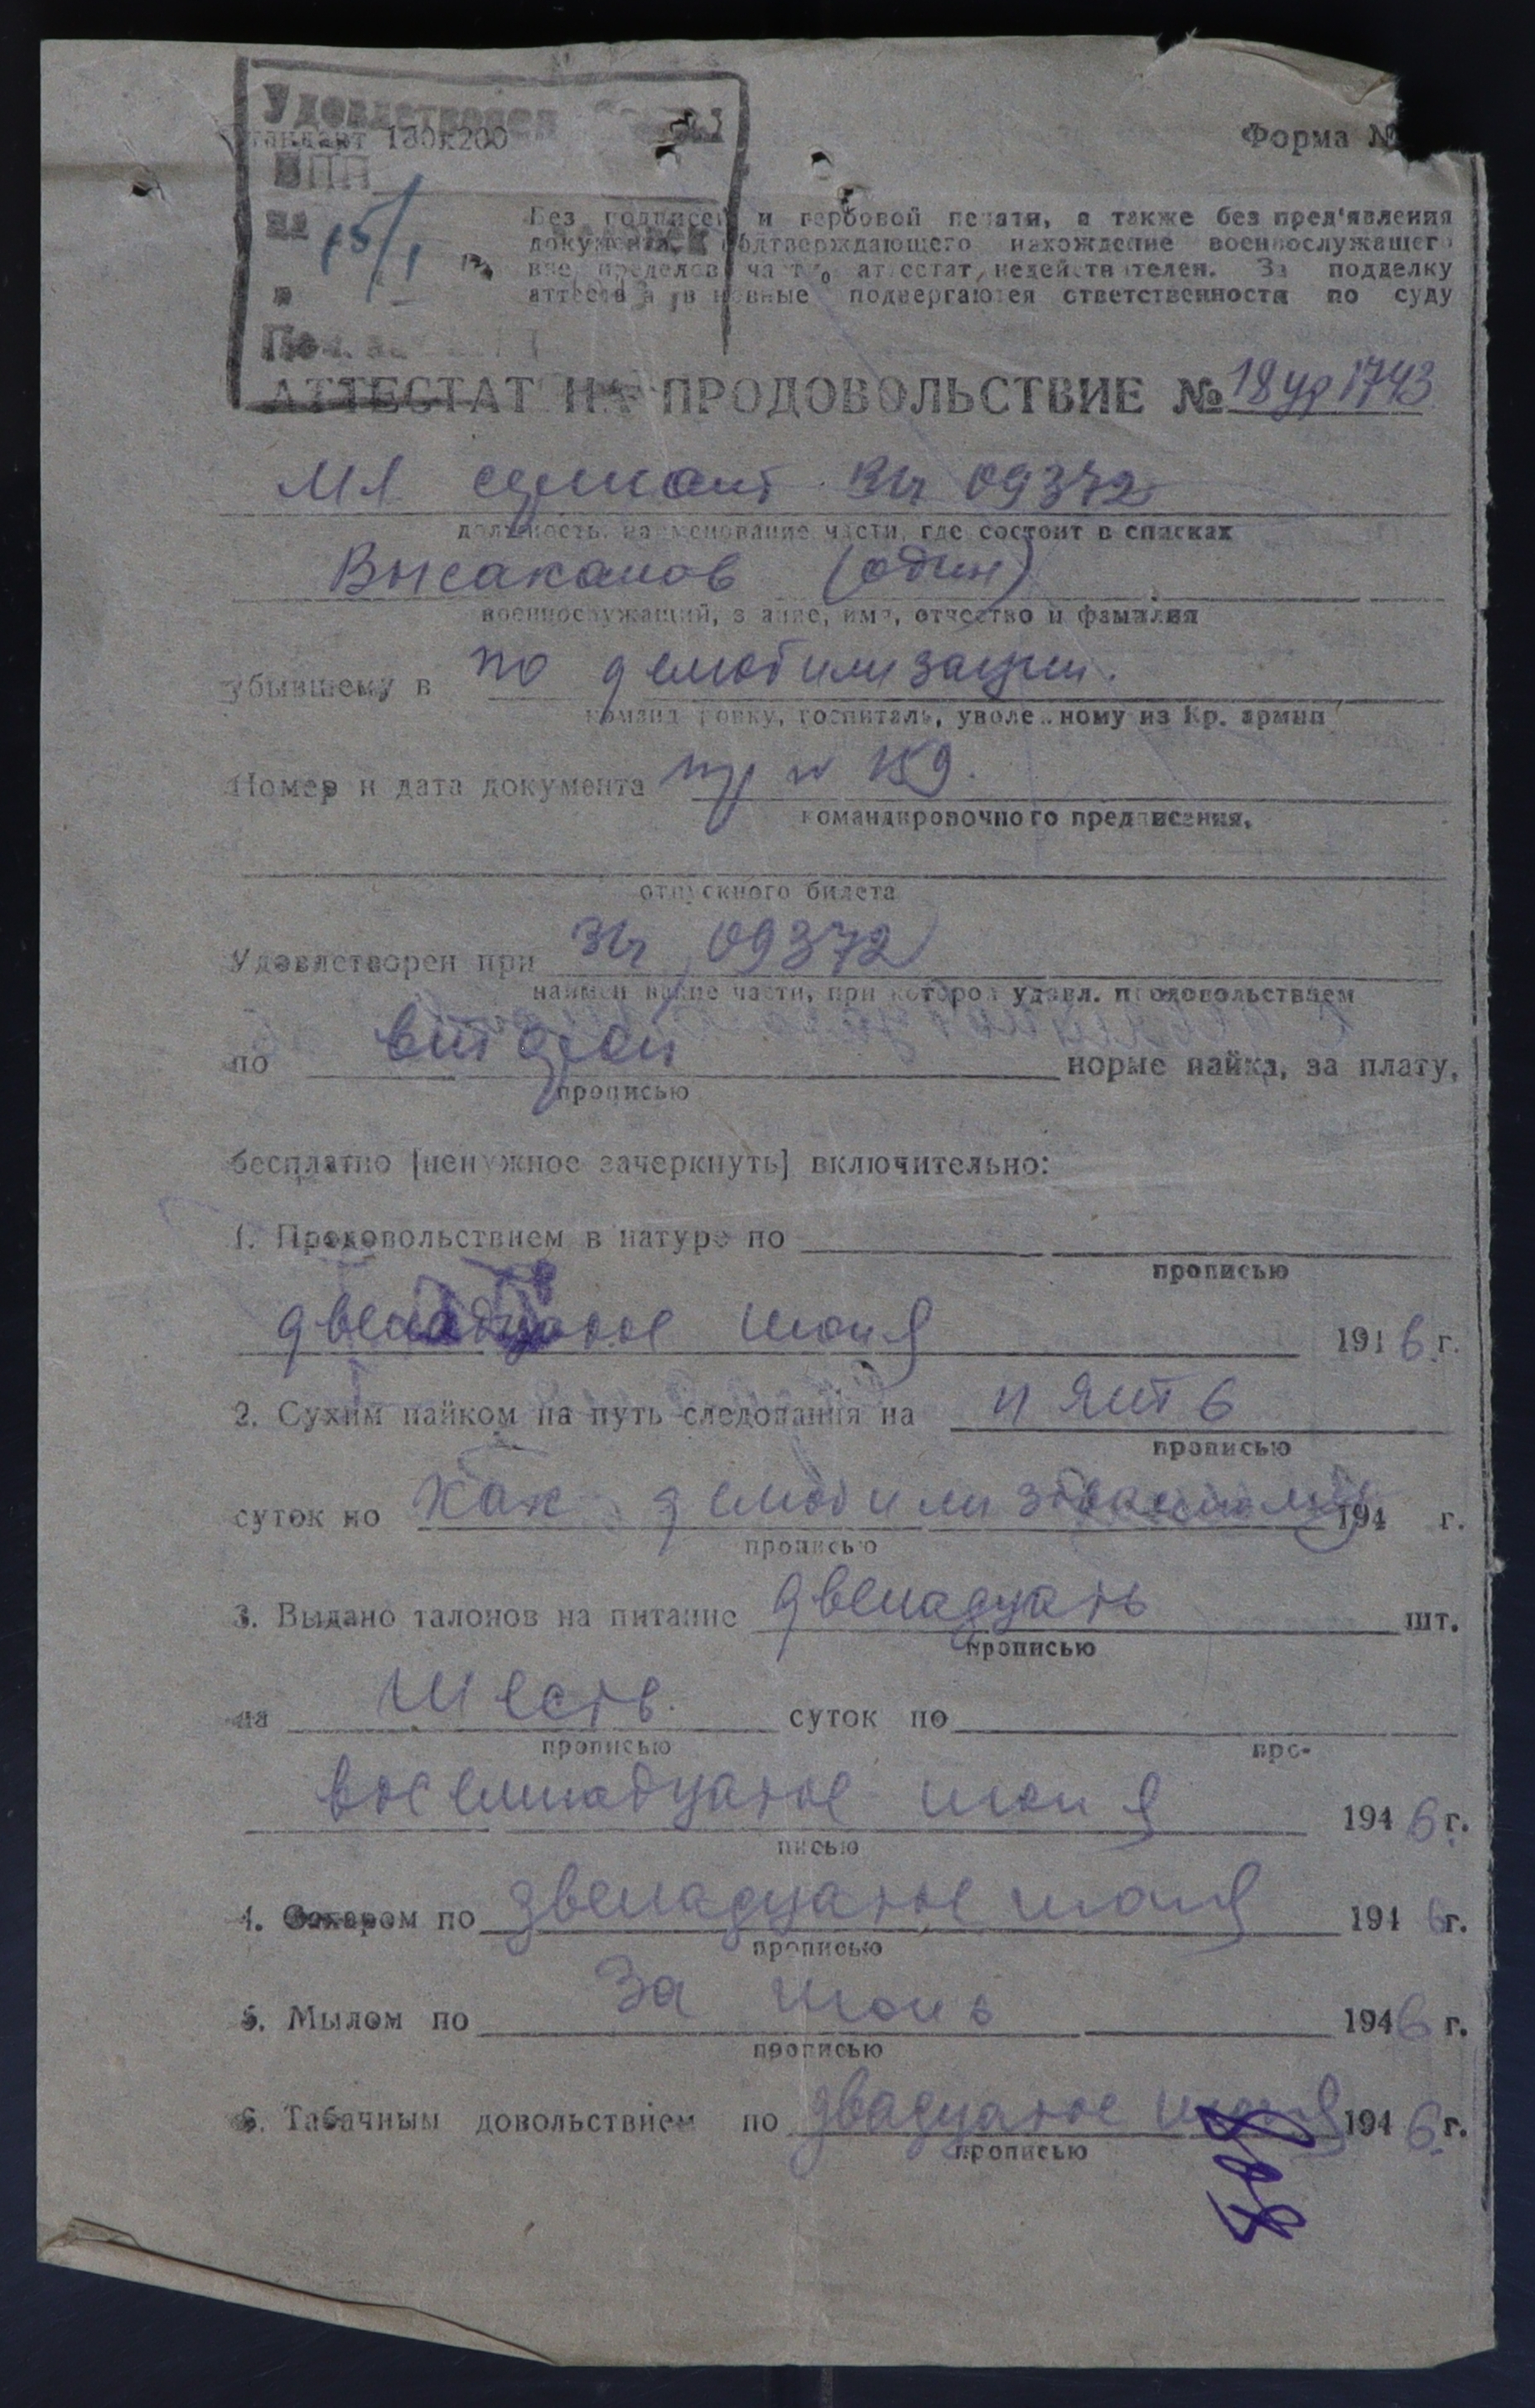 Удовлетворен
Стандарт 130х200
Форма №
ВПП
на 15/I
Без подписей и гербовой печати, а также без пред'явления
документа, подтверждающего нахождение военнослужащего
вне пределов части, аттестат недействителен. За подделку
аттестата виновные подвергаются ответственности по суду
АТТЕСТАТ НА ПРОДОВОЛЬСТВИЕ № 18 1743
Мл сержант 09372
должность, наименование части, где состоит в списках
Высаканов (один)
военнослужащий, звание, имя, отчество и фамилия
убывшему в по демобилизации.
командировку, госпиталь, уволенному из Кр. армии
Номер и дата документа пр № 159.
командировочного предписания,
отпускного билета
Удовлетворен при 09372
наименование части, при которой удовл. продовольствием
по второй норме пайка, за плату,
прописью
бесплатно [ненужное зачеркнуть] включительно:
1. Продовольствием в натуре по
прописью
двенадцатое июня 1946 г.
2. Сухим пайком на путь следования на пять
прописью
суток по как 194 г.
прописью
3. Выдано талонов на питание двенадцать шт.
прописью
на шесть суток по
прописью про-
восемнадцатое июня 1946 г.
писью
4. Сахаром по двенадцатое июня 1946 г.
прописью
5. Мылом по за июнь 1946 г.
прописью
6. Табачным довольствием по двадцатое июня 1946 г.
прописью